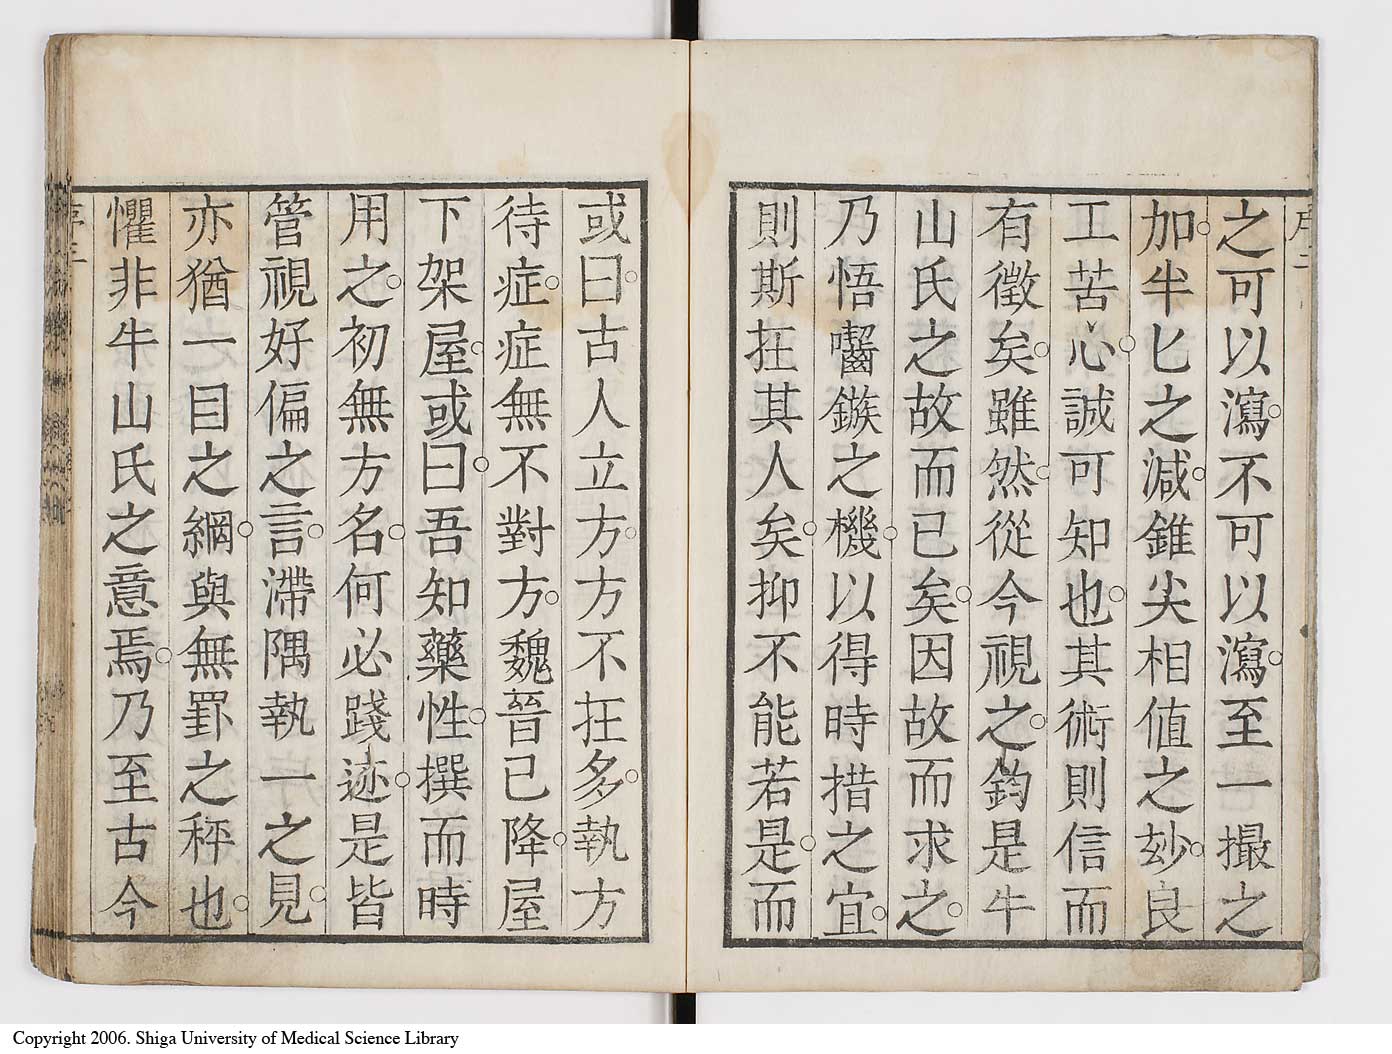 之可以瀉不可以瀉至一撮之
加半匕之減錐尖相值之玅良
工苦心誠可知也其術則信而
有徵矣雖然從今視之鈞是牛
山氏之故而已矣因故而求之
乃悟囓鏃之機以得時措之宜
則斯在其人矣抑不能若是而
或曰古人立方方不在多執方
待症症無不對方魏晉已降屋
下架屋或曰吾知藥性撰而時
用之初無方名何必踐迹是皆
管視好偏之言滯隅執一之見
亦猶一目之網與無罫之秤也
懼非牛山氏之意焉乃至古今
Copyright 2006. Shiga University of Medical Science Library